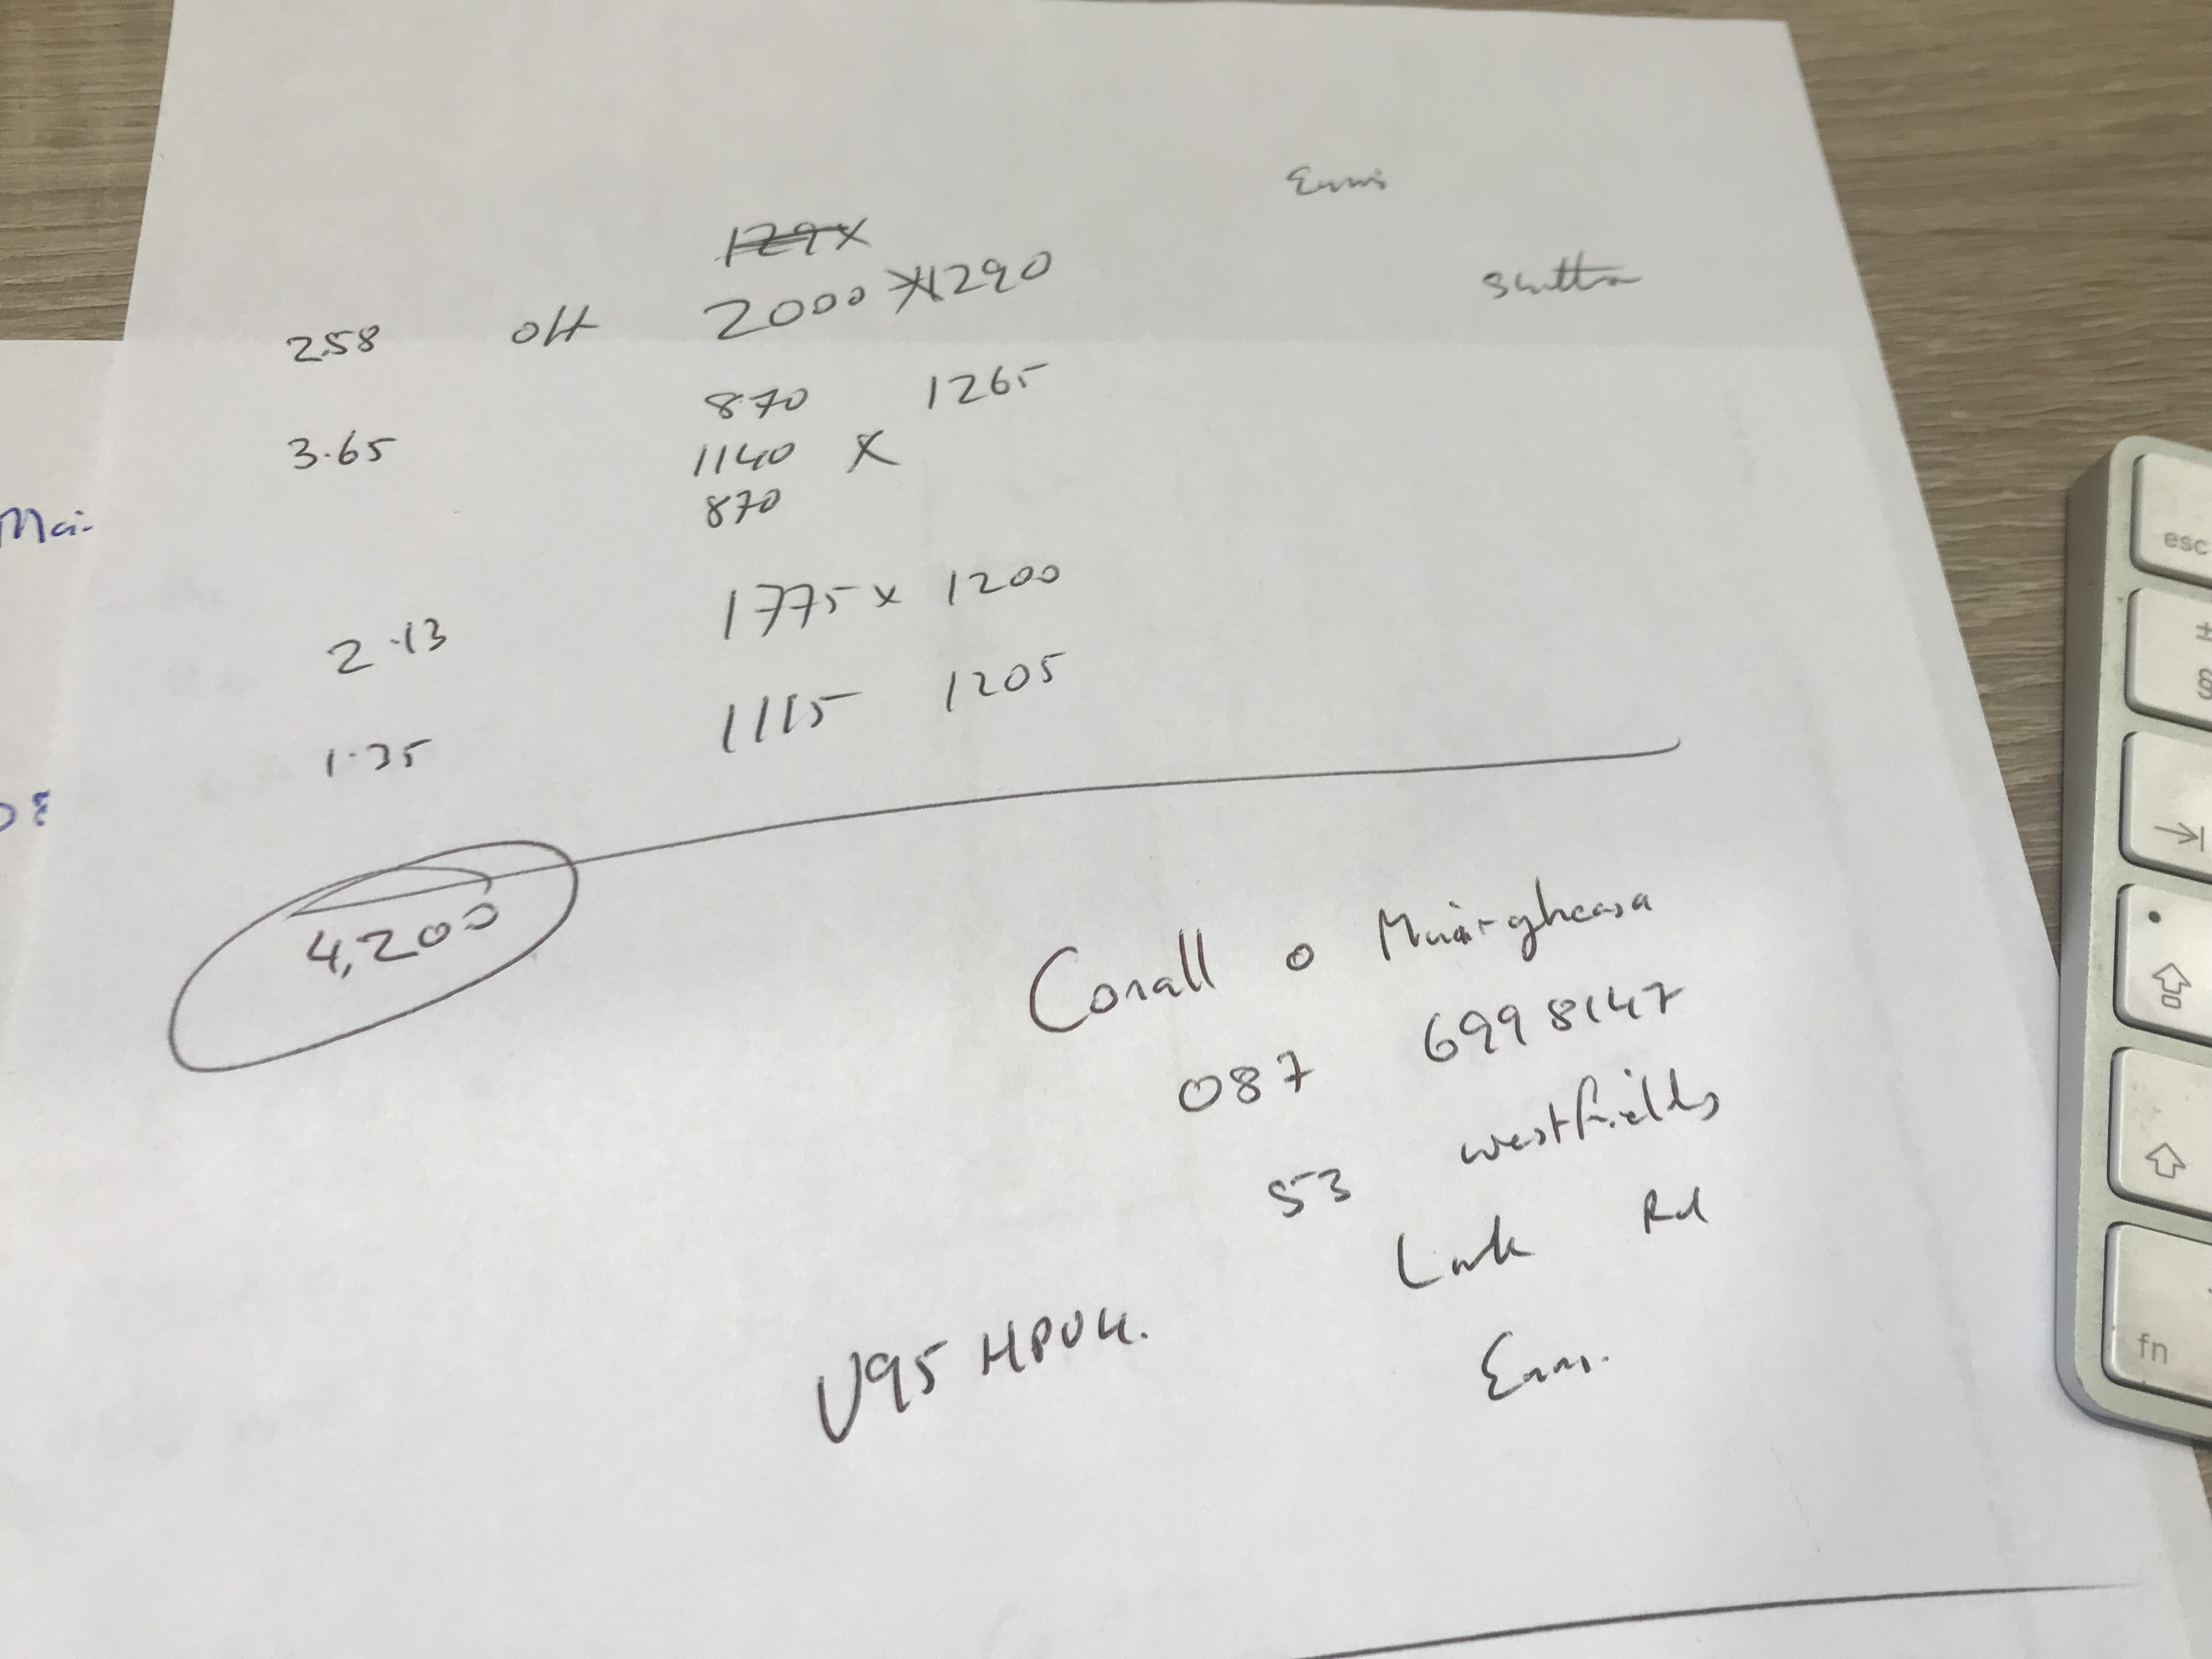 Ennis
129x
258 off 2000 x 1290
870 1265
3.65 1140 x
870
Mai
2.13 1775 x 1200
1.35 1115 1205
08
4,200
Conall o Muirgheasa
087 699 8147
53 westfields
Link Rd
U95 HPUK.
Enni.
esc
±
§
fn